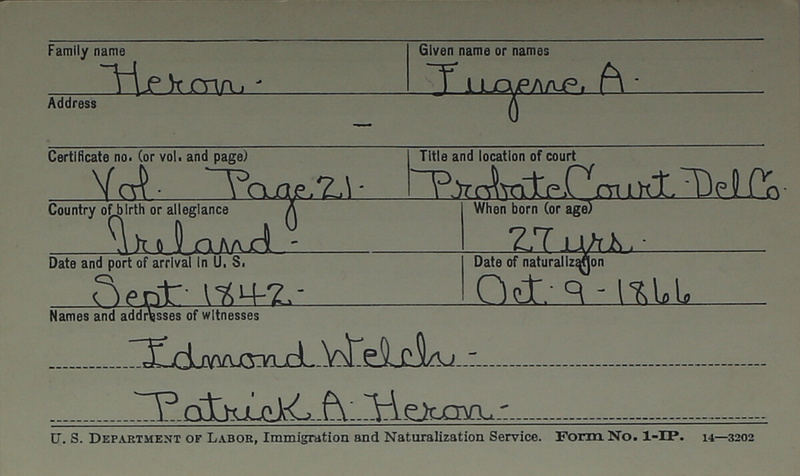 Family name Given name or names
Heron - Eugene A.
Address
—
Certificate no. (or vol. and page) Title and location of court
Vol. Page 21. Probate Court Del Co.
Country of birth or allegiance When born (or age)
Ireland - 27 yrs.
Date and port of arrival in U. S. Date of naturalization
Sept. 1842 - Oct. 9 - 1866
Names and addresses of witnesses
Edmond Welch -
Patrick A. Heron -
U. S. DEPARTMENT OF LABOR, Immigration and Naturalization Service. Form No. 1-IP. 14—3202